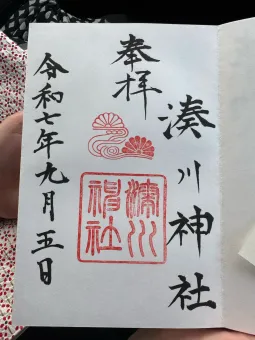 奉拝
湊川神社
湊川神社
令和七年九月五日